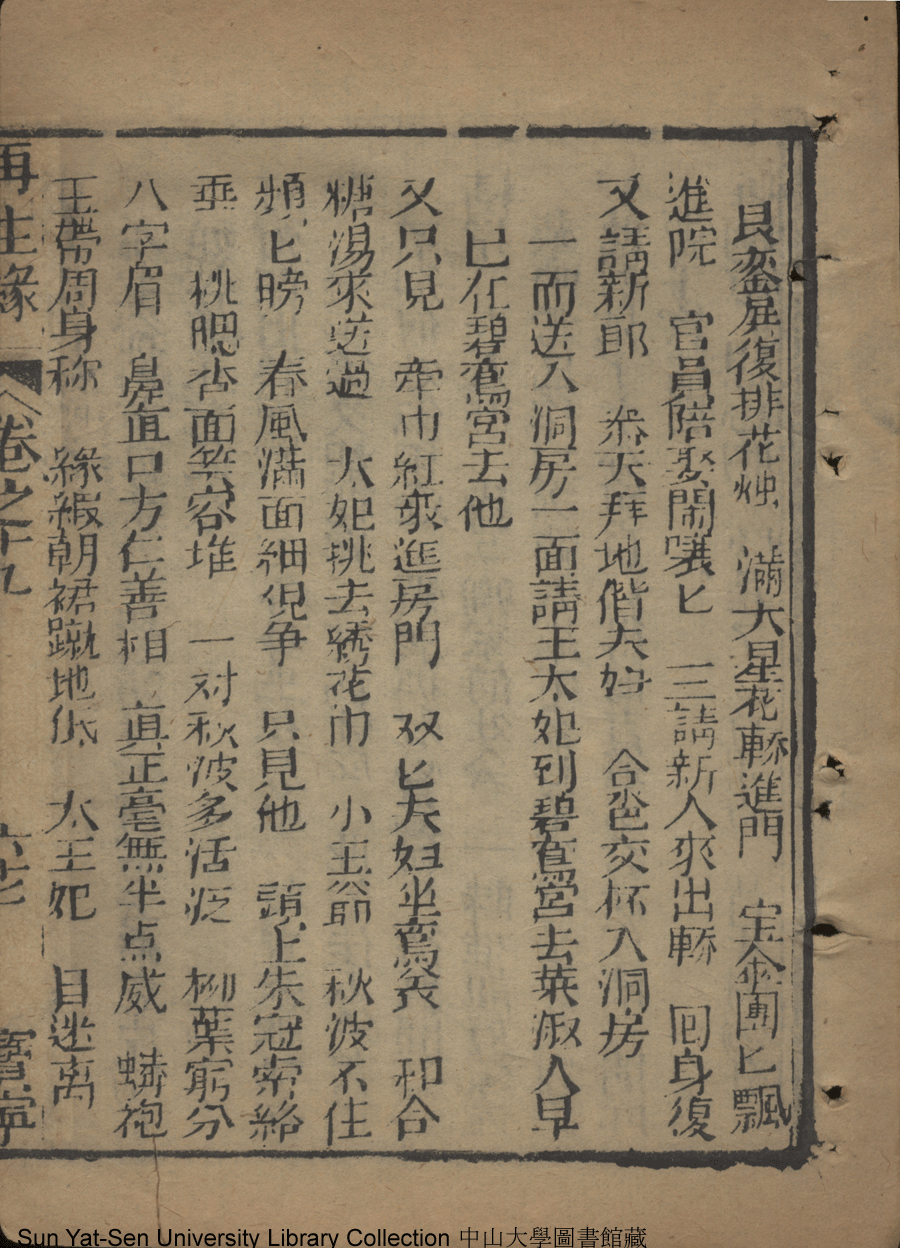 艮銮屏復排花烛　满大星花轎進門　宝傘團匕飄
進院　官員陪娶閙嚷匕　三請新人來出轎　囘身復
又請新郎　叅天拜地偕夫妇　合卺交杯入洞房
一而送入洞房一面請王太妃到碧鸾宮去葉淑人早
已在碧鸞宮去他
又只見　牵巾紅來進房門　双匕夫妇坐鸞衾　和合
糖湯來送過　太妃挑去綉花巾　小王爺　秋波不住
頻匕膀　春風满面細覌争　只見他　頭上朱冠索絡
垂　桃腮杏面笑容堆　一对秋波多活泛　柳葉窮分
八字眉　鼻直口方仁善相　真正毫無半点威　蟒袍
玉帶周身称　綠緞朝裙蹴地低　太王妃　目迷离
再生緣　卷之十九　六七　寶寧
Sun Yat-Sen University Library Collection 中山大學圖書館藏